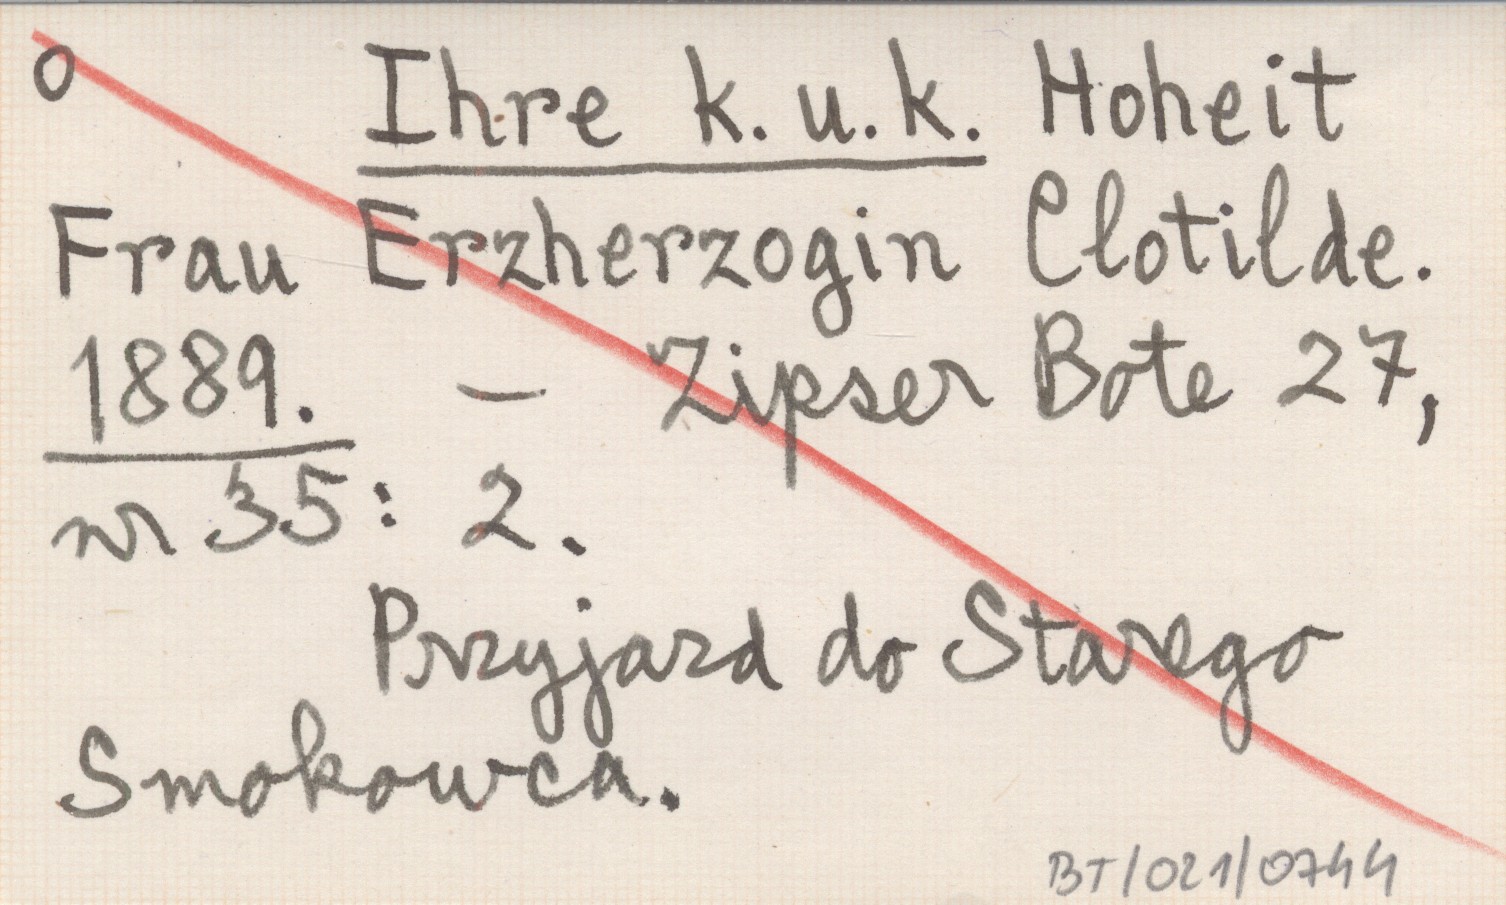 o Ihre k. u. k. Hoheit
Frau Erzherzogin Clotilde.
1889. – Zipser Bote 27,
nr 35: 2.
Przyjazd do Starego
Smokowca.
BT/021/0744